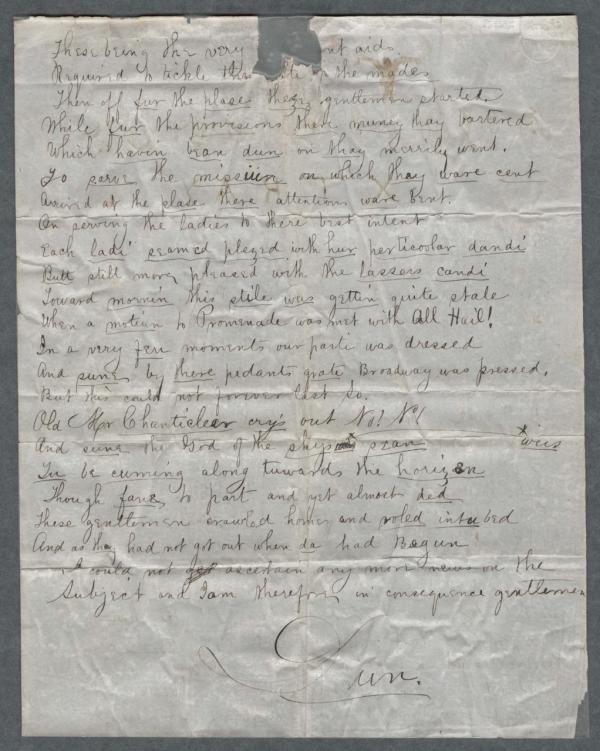 These being the very nt aids.
Required to tickle the the mades
Then off fur the plase these gentlemen started.
While fur the provisions there muney thay bartered
Which havin bean dun on thay merrily went.
To sarve the missiun on which thay ware cent
Arrived at the plase there attentions ware Bent.
On serving the ladies to there best intent
Each ladi seamed plezed with hur perticoolar dandi
Butt still more, pleased with the Lassers candi
Toward mornin this stile was gettin quite stale
When a motiun to Promenade was met with All Hail!
In a very feu moments our parti was dressed
And sune, by there pedants grate Broadway was pressed.
But this could not forever last so.
Old Mr Chanticleer crys out No! No!
And sune the God of the skys was sean
Tu be cuming along tuwards the horizon
Though fane, to part and yet almost ded
These gentlemen crawled homes and roled intu bed
And as they had not got out when da had Begun
I could not get ascertain any more news on the
Subject and I am therefore, in consequence gentlemen
Dun.